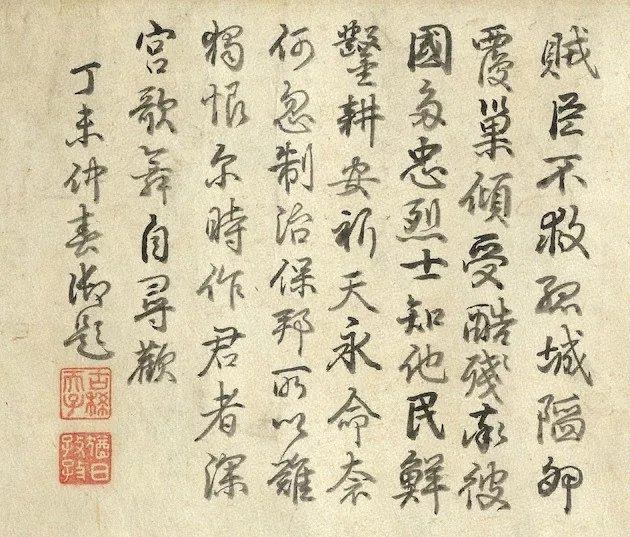 賊臣不救孤城陷卵
覆巢傾受酷殘彼
國多忠烈士知他民鮮
鑿耕安祈天永命奈
何忽制治保邦所以難
獨恨尔時作君者深
宮歌舞自尋歡
丁未仲春御題
古稀天子
猶日孜孜